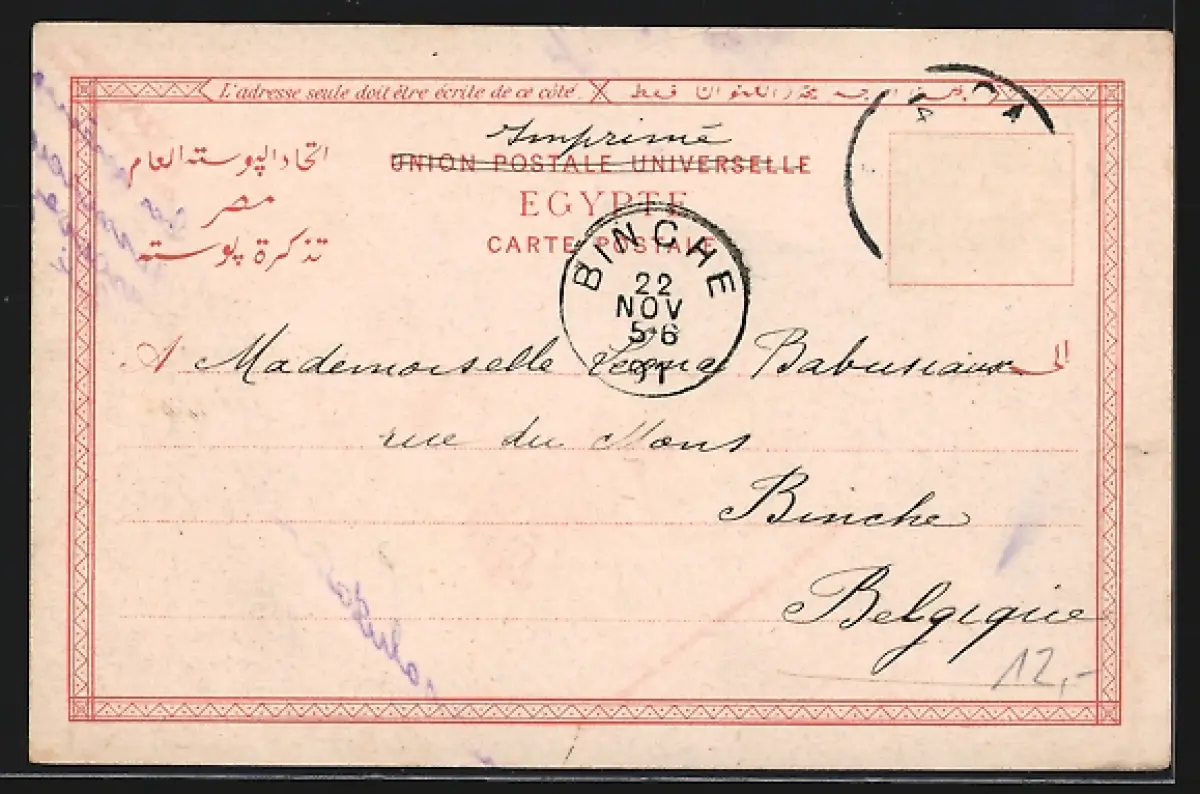 L'adresse seule doit être écrite de ce côté.
Imprimé
UNION POSTALE UNIVERSELLE
EGYPTE
CARTE POSTALE
اتحاد الپوسته العام
مصر
تذكرة پوسته
BINCHE
22
NOV
5-6
A Mademoiselle Babusiaux الى
rue du Mons
Binche
Belgique
12,-